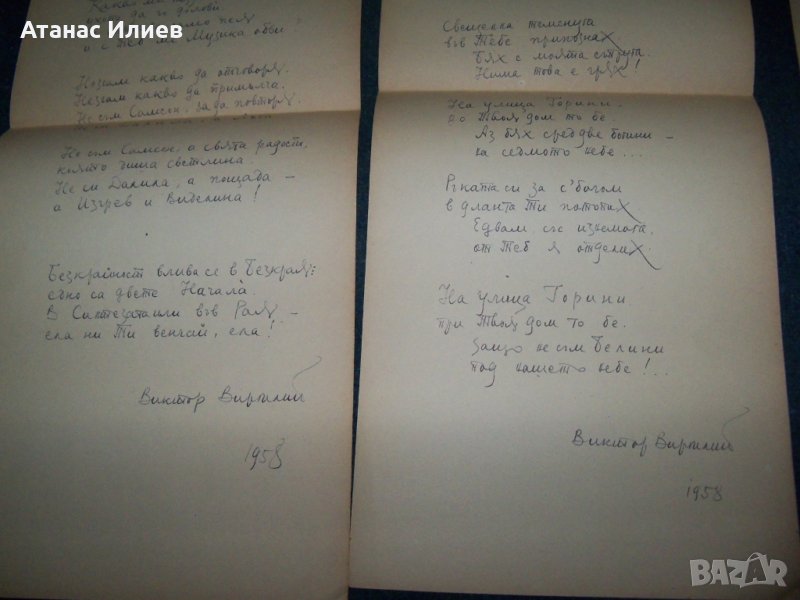 Атанас Илиев
Какво ми
да
и с Теб ми Музика обви
Незнам какво да отговоря.
Незнам какво да примълча.
Не съм Самсон, за да повторя
Не съм Самсон, а свята радост,
която пиша светлина
Не си Далила, а пощада –
а Изгрев и Виделина!
Безкрайност влива се в Безкрая:
само са двете Начала.
В или във Рая, –
ела ни Ти венчай, ела!
Виктор Виргилий
1958
теменуга
във Тебе припознах.
Бях с моята съпруга.
Нима това е грях!
На улица Горини
до Твоя дом то бе.
Аз бях сред две богини –
на седмото небе...
Ръката си за с'богом
в дланта Ти потопих
Едвам, със изнемога,
от Теб я отделих.
На улица Горини
при Твоя дом то бе.
Защо не съм Белини
под нашето небе!..
Виктор Виргилий
1958
BAZAR